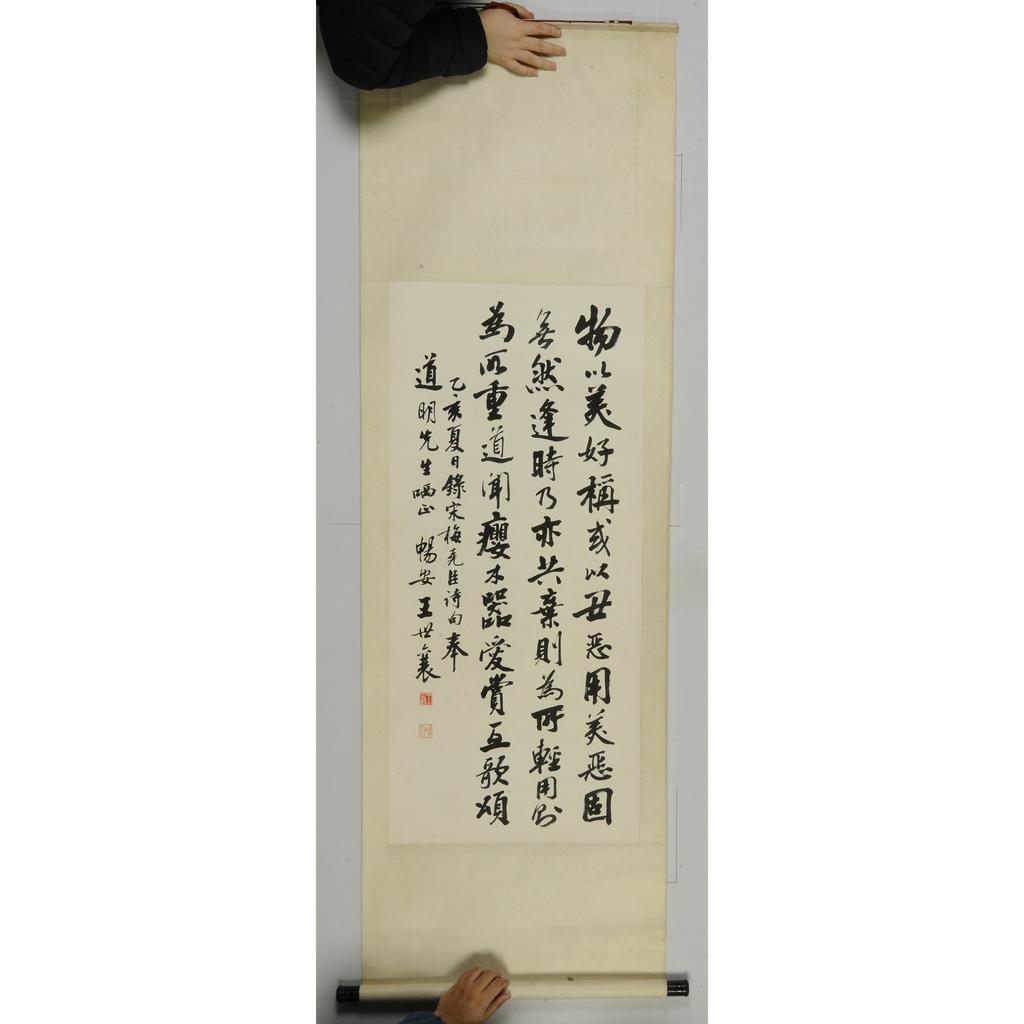 物以美好稱或以丑惡用美惡固
無然逢時乃亦共棄則為所輕用則
為所重道聞癭木器愛賞互歌頌
乙亥夏日錄宋梅堯臣詩句奉
道明先生哂正 暢安王世襄